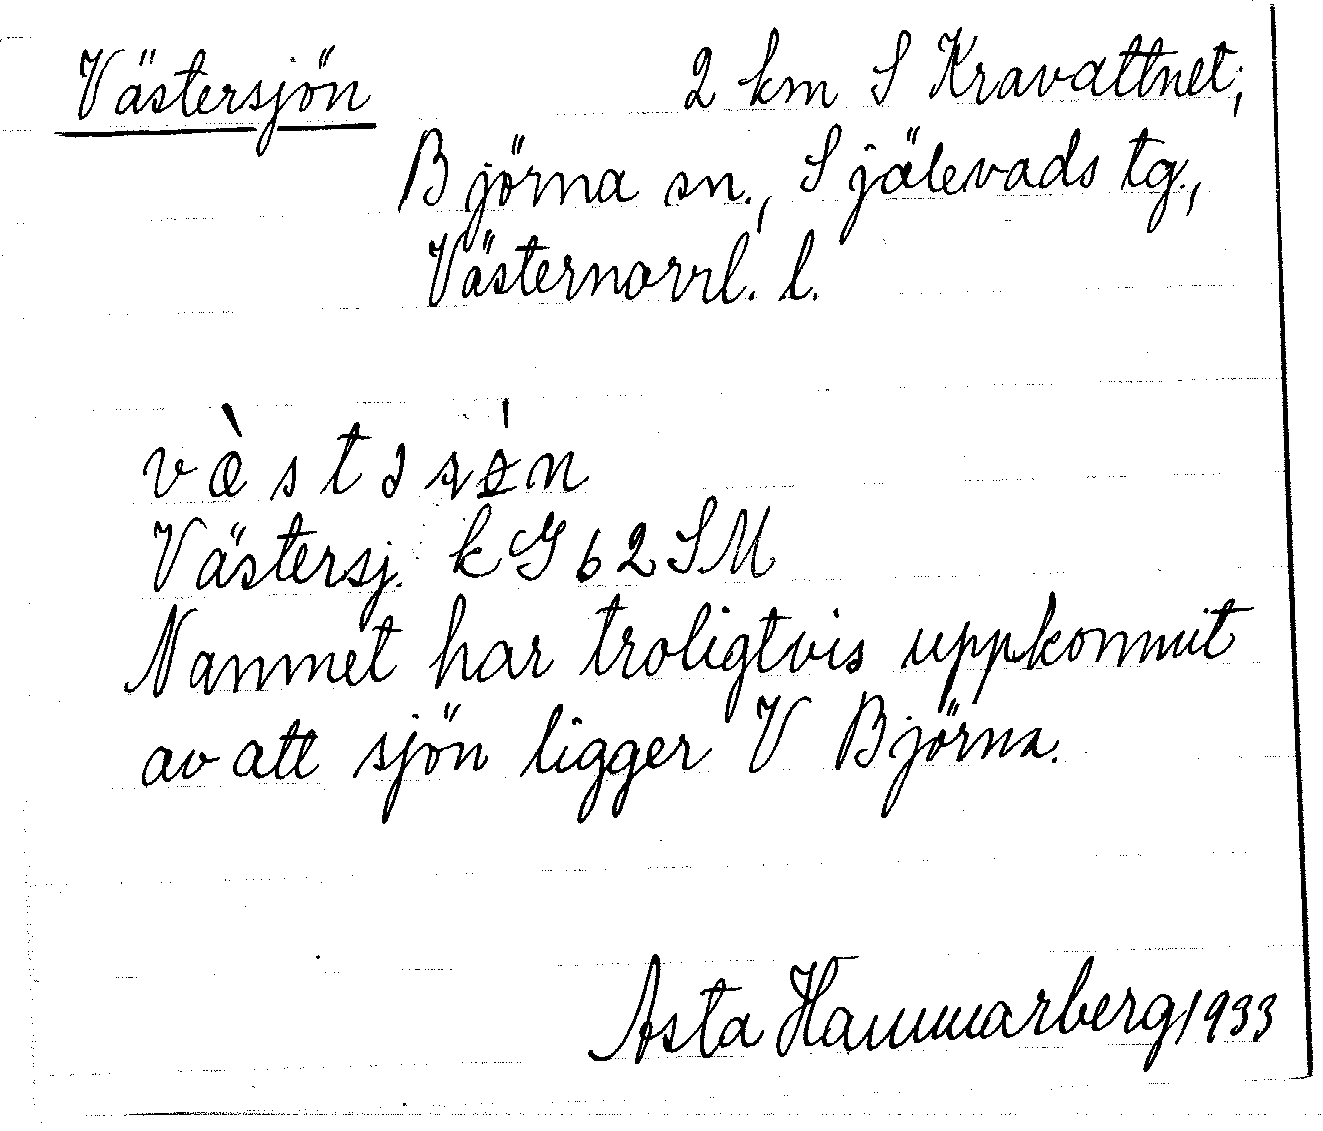 Västersjön 2 km S Kravattnet;
Björna sn., Själevads tg.,
Västernorrl. l.
Västersj. k G 62 SM
Namnet har troligtvis uppkommit
av att sjön ligger V Björna.
Asta Hammarberg 1933